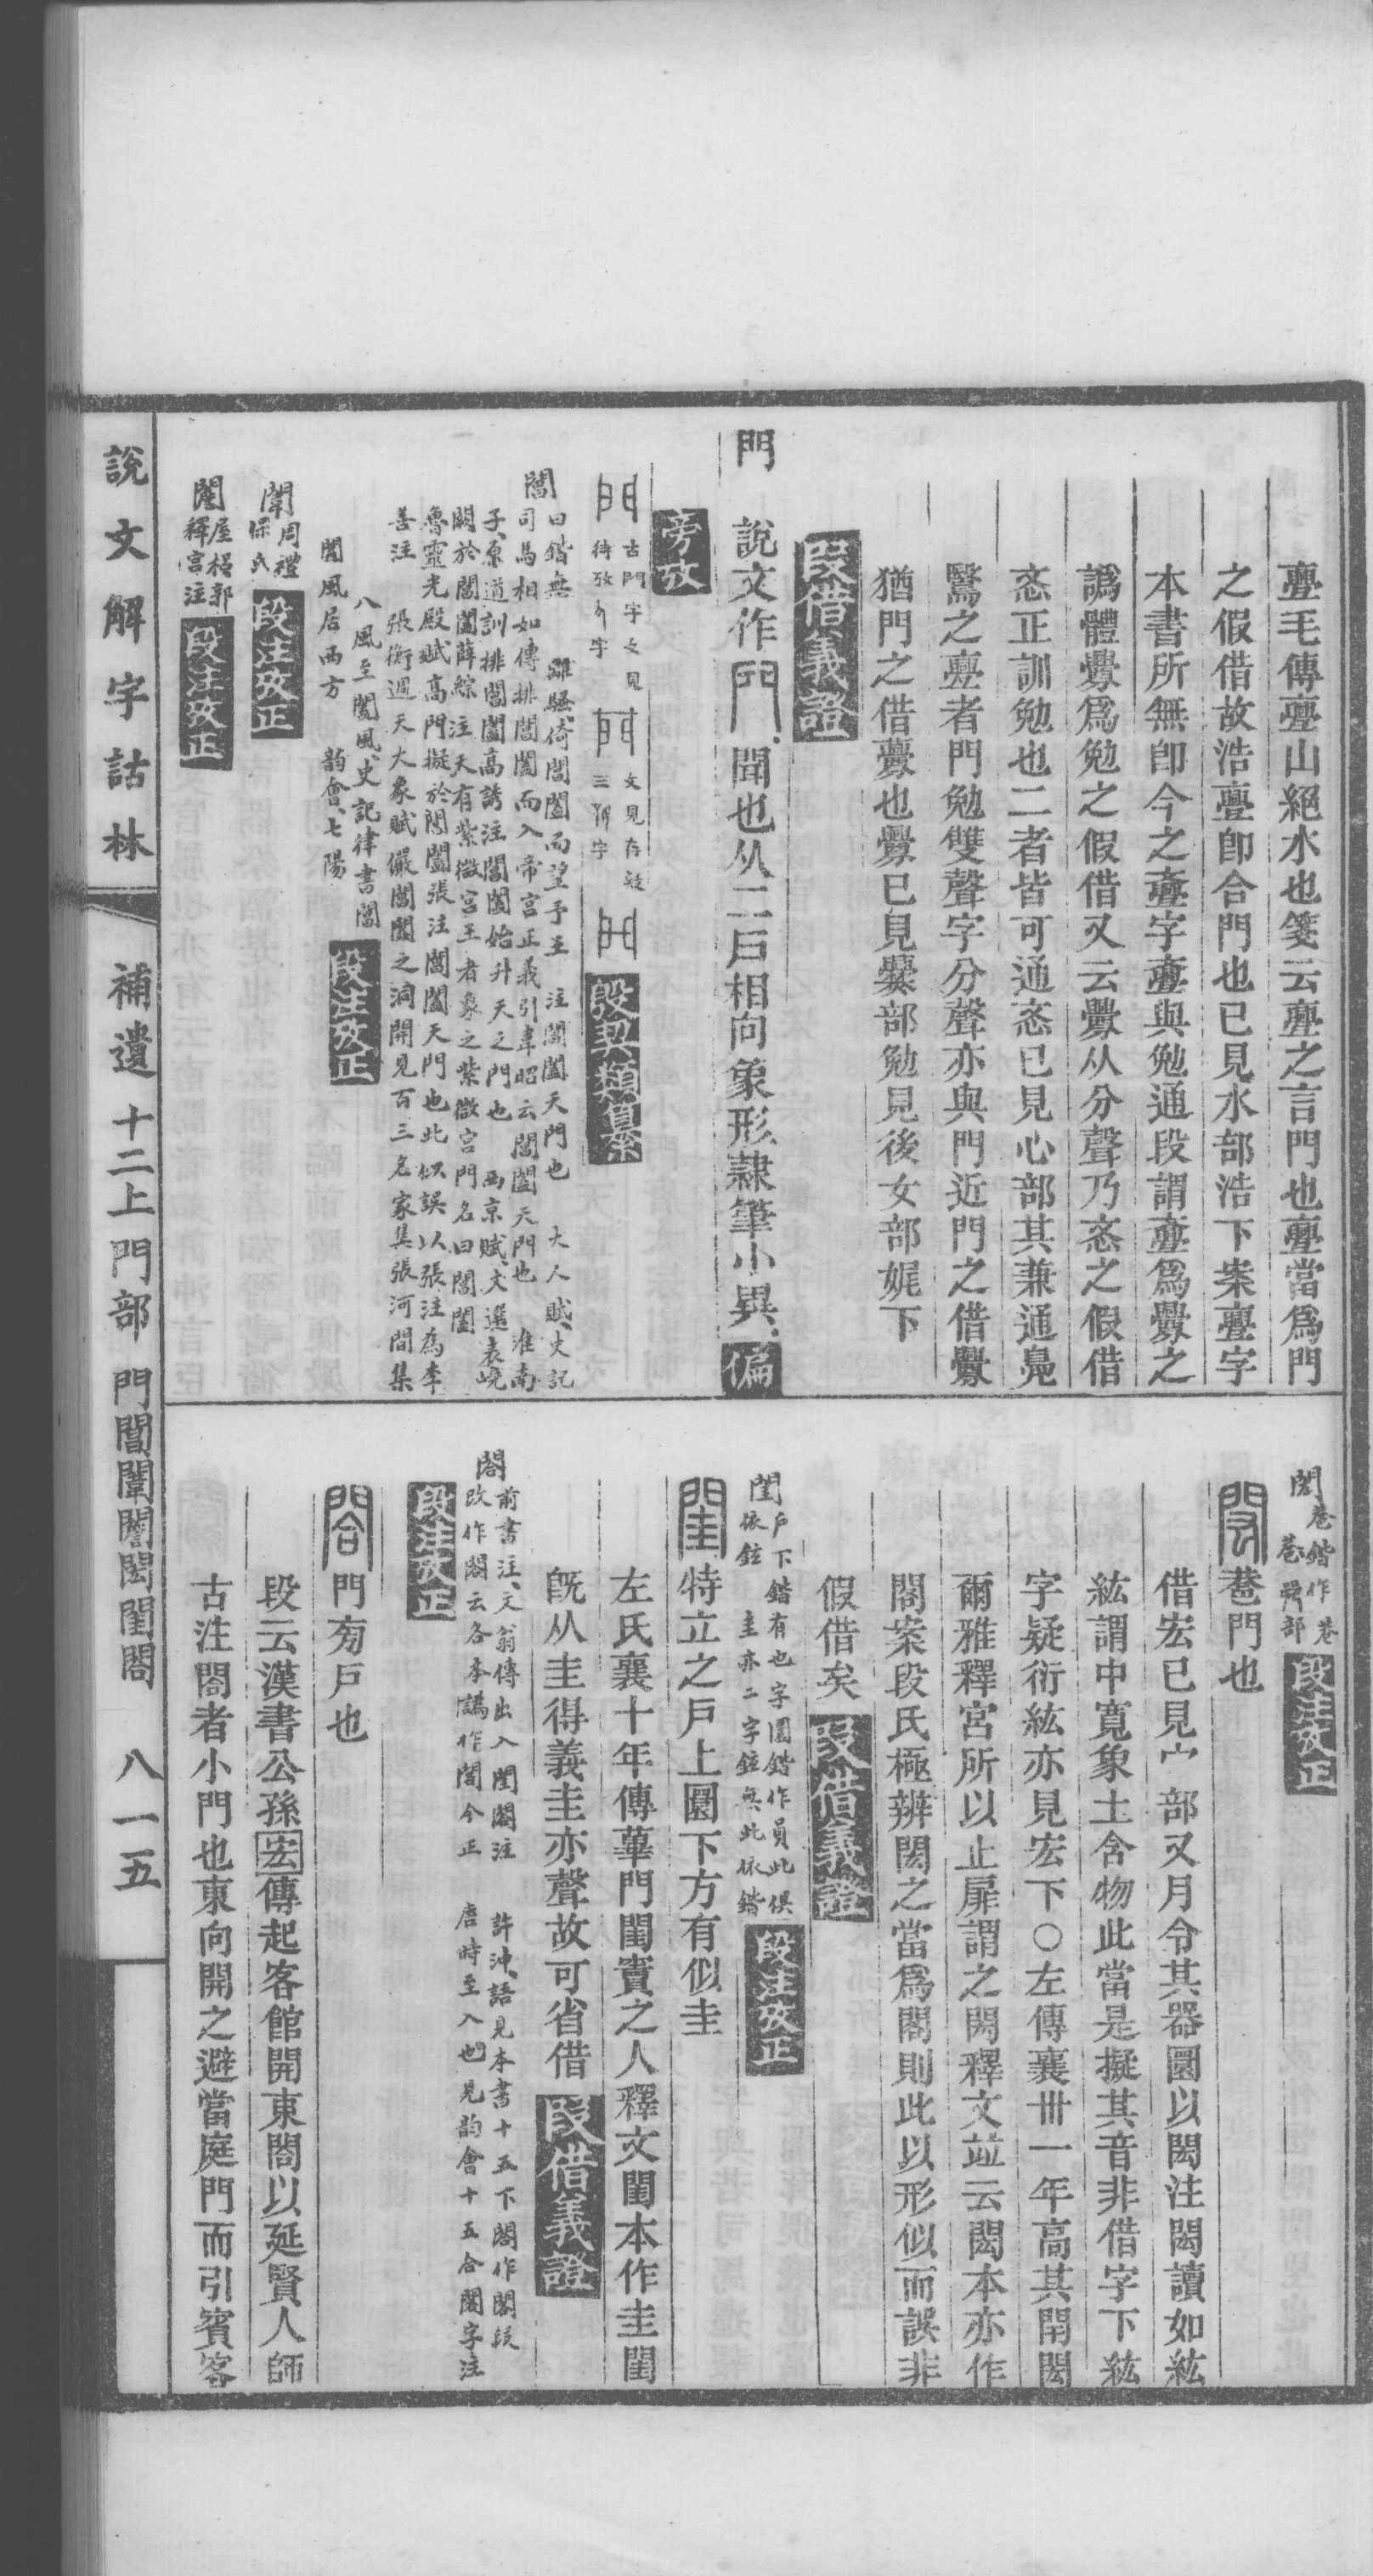 亹毛傳亹山絕水也箋云亹之言門也亹當爲門
之假借故浩亹卽合門也已見水部浩下案亹字
本書所無卽今之亹字亹與勉通段謂亹爲釁之
譌體釁爲勉之假借又云釁从分聲乃忞之假借
忞正訓勉也二者皆可通忞已見心部其兼通鳧
鷖之亹者門勉雙聲字分聲亦與門近門之借釁
猶門之借虋也釁已見爨部勉見後女部娓下
段借義證
門 說文作門聞也从二戶相向象形隸筆小異偏
旁攷
古門字文見 文見存攷
待攷 字 三 字
殷契類纂
閶曰鍇無 離騷倚閶闔而望予王 注閶闔天門也 大人賦史記
司馬相如傳排閶闔而入帝宮正義引韋昭云閶闔天門也 淮南
子原道訓排閶闔高誘注閶闔始升天之門也 西京賦文選表嶢
闕於閶闔薛綜注天有紫微宮王者象之紫微宮門名曰閶闔
魯靈光殿賦高門擬於閶闔張注閶闔天門也此似誤以張注為李
善注 張衡週天大象賦儼閶闔之洞開見百三名家集張河間集
八風至閶風史記律書閶
闔風居西方 韵會七陽
段注攷正
闈周禮
保氏
段注攷正
屋梠郭
釋宮注
段注攷正
閎巷鍇作巷
巷 部
段注攷正
閎 巷門也
借宏已見宀部又月令其器圜以閎注閎讀如紘
紘謂中寬象土含物此當是擬其音非借字下紘
字疑衍紘亦見宏下○左傳襄卅一年高其閈閎
爾雅釋宮所以止扉謂之閎釋文竝云閎本亦作
閣案段氏極辨閎之當爲閣則此以形似而誤非
假借矣
段借義證
閨戶下鍇有也字圜鍇作員此俱
依鉉 圭亦二字鉉無此依鍇
段注攷正
閨 特立之戶上圜下方有似圭
左氏襄十年傳蓽門閨竇之人釋文閨本作圭閨
旣从圭得義圭亦聲故可省借
段借義證
閤前書注文翁傳出入閨閤注 許沖語見本書十五下閤作閣段
改作閤云各本譌作閣今正 唐時至入也見韵會十五合閤字注
段注攷正
閤 門菊戶也
段云漢書公孫宏傳起客館開東閤以延賢人師
古注閤者小門也東向開之避當庭門而引賓客
說文解字詁林
補遺 十二上 門部 門閶闈閎閨閤
八一五